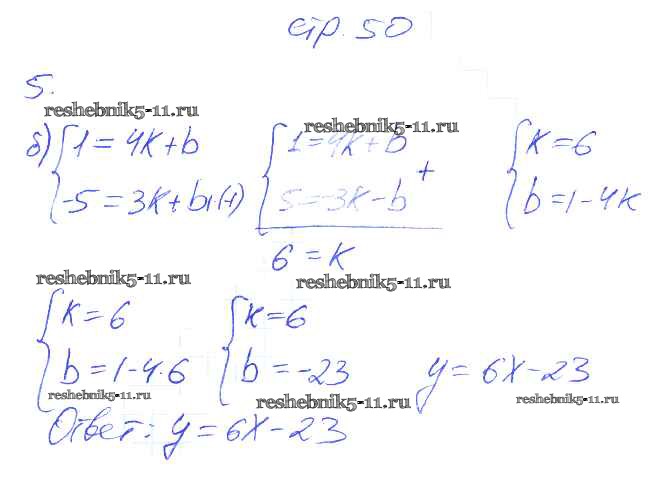 стр. 50
5.
reshebnik5-11.ru
reshebnik5-11.ru
б) {1=4k+b {1=4k+b {k=6
-5=3k+b |·(-1) 5=-3k-b + b=1-4k
6=k
reshebnik5-11.ru reshebnik5-11.ru
{k=6 {k=6
b=1-4·6 b=-23 y=6x-23
reshebnik5-11.ru reshebnik5-11.ru reshebnik5-11.ru
Ответ: y=6x-23